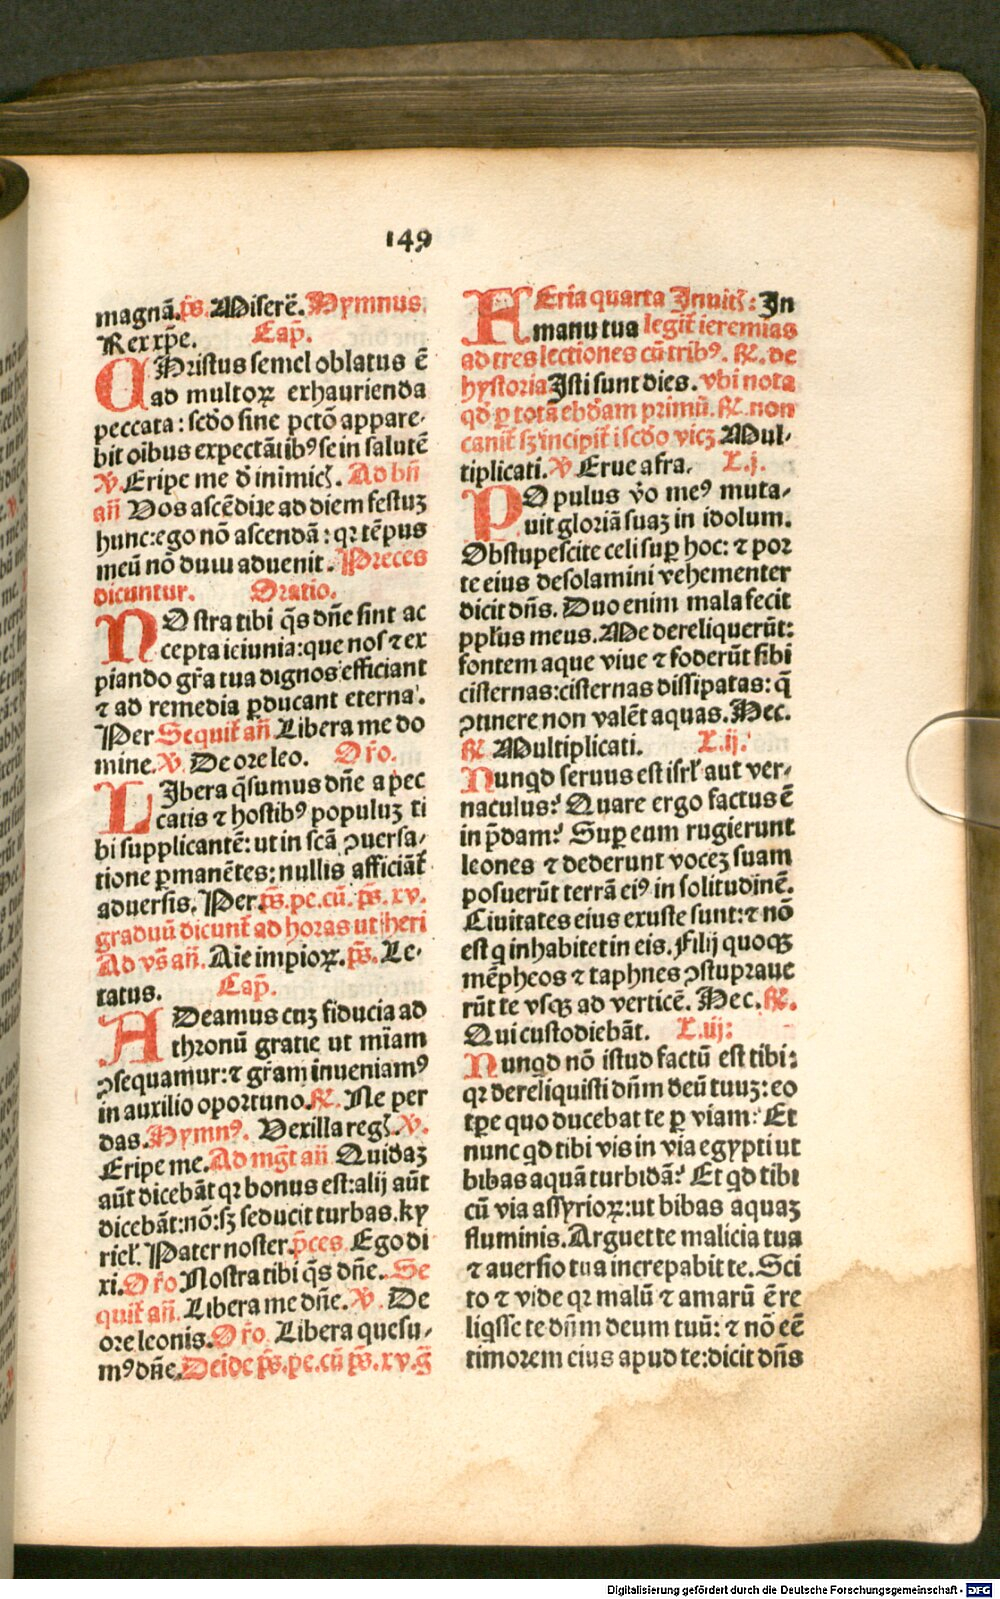 149
magnã.p̃s. Miserẽ. Hymnus.
Rex xp̃e. Cap̃.
CHristus semel oblatus ẽ
ad multoꝝ exhaurienda
peccata: scđo sine pctõ appare-
bit oĩbus expectãtibꝰ se in salutẽ
℣. Eripe me đ inimicꝭ. Ad bñ
añ Vos ascẽdite ad diem festuꝫ
hunc: ego nõ ascendã: qꝛ tẽpus
meũ nõ dum aduenit. Preces
dicuntur. Oratio.
NOstra tibi q̃s dñe sint ac
cepta ieiunia: que nos ⁊ ex
piando gr̃a tua dignos efficiant
⁊ ad remedia ꝑducant eterna.
Per Sequit̃ añ Libera me do
mine. ℣. De ore leo. Or̃o.
LIbera q̃sumus dñe a pec
catis ⁊ hostibꝰ populuꝫ ti
bi supplicantẽ: ut in scã ꝯuersa-
tione ꝑmanẽtes: nullis afficiãt̃
aduersis. Per. p̃s. pe. cũ. p̃s. xv.
graduũ dicunt̃ ad horas ut heri
Ad vs̃ añ. Aĩe impioꝝ. p̃s. Le-
tatus. Cap̃.
ADeamus cuꝫ fiducia ad
thronũ gratie ut mĩam
ꝯsequamur: ⁊ gr̃am inueniamꝰ
in auxilio oportuno. ℟. Ne per
das. Hymnꝰ. Vexilla regꝭ. ℣.
Eripe me. Ad mg̃t añ Quidaꝫ
aũt dicebãt qꝛ bonus est: alij aũt
dicebãt: nõ: sꝫ seducit turbas. ky
riel̃. Pater noster. p̃ces. Ego di
xi. Or̃o Nostra tibi q̃s dñe. Se
quit̃ añ. Libera me dñe. ℣. De
ore leonis. Or̃o. Libera quesu-
mꝰ dñe. Deĩde p̃s. pe. cũ p̃s. xv. g̃
FEria quarta Inuitꝭ: In
manu tua legit̃ ieremias
ad tres lectiones cũ tribꝰ. ℟. de
hystoria Isti sunt dies. vbi nota
qđ ꝑ totã ebđam primũ. ℟. non
canit̃ sꝫ incipit̃ i scđo vicꝫ Mul-
tiplicati. ℣. Erue a fra. L. j.
POpulus ṽo meꝰ muta-
uit gloriã suaꝫ in idolum.
Obstupescite celi suꝑ hoc: ⁊ por
te eius desolamini vehementer
dicit dñs. Duo enim mala fecit
pp̃lus meus. Me dereliquerũt:
fontem aque viue ⁊ foderũt sibi
cisternas: cisternas dissipatas: q̃
ꝯtinere non valẽt aquas. Hec.
℟. Multiplicati. L. ij.
Nunqđ seruus est isrl̃ aut ver-
naculus? Quare ergo factus ẽ
in p̃dam? Suꝑ eum rugierunt
leones ⁊ dederunt voceꝫ suam
posuerũt terrã eiꝰ in solitudinẽ.
Ciuitates eius exuste sunt: ⁊ nõ
est q inhabitet in eis. Filij quoqꝫ
mẽpheos ⁊ taphnes ꝯstuprauе
rũt te vsqꝫ ad verticẽ. Hec. ℟.
Qui custodiebãt. L. iij:
Nunqđ nõ istud factũ est tibi:
qꝛ dereliquisti dñm deũ tuuꝫ: eo
tp̃e quo ducebat te ꝑ viam? Et
nunc qđ tibi vis in via egypti ut
bibas aquã turbidã? Et qđ tibi
cũ via assyrioꝝ: ut bibas aquaꝫ
fluminis. Arguet te malicia tua
⁊ auersio tua increpabit te. Sci
to ⁊ vide qꝛ malũ ⁊ amarũ ẽ re
liqsse te dñm deum tuũ: ⁊ nõ eẽ
timorem eius apud te: dicit dñs
Digitalisierung gefördert durch die Deutsche Forschungsgemeinschaft - DFG